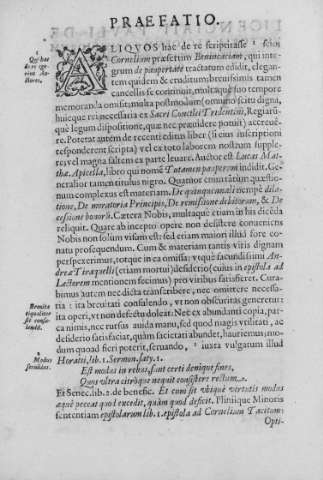 PRAEFATIO.
1
Qui hac de re egerint Auctores.
ALIQVOS hac de re scripsisse 1 scio:
Cornelium præsertim Benincasium, qui integrum
de paupertate tractatum edidit, elegantem
quidem & eruditum; breuissimis tamen
cancellis se continuit, multaque suo tempore
memoranda omisit; multa postmodum (omnino scitu digna,
huicque rei necessaria ex Sacri Concilij Tridentini, Regiarúmque
legum dispositione, quæ nec præuidere potuit) accreuere.
Poterat autem de recenti editus liber (si eius inscriptioni
responderent scripta) vel ex toto laborem nostrum supplere,
vel magna saltem ex parte leuare. Auctor est Lucas
Apicella, libro qui nomen Tutamen pauperum indidit. Generalior
tamen titulus nigro. Quatuor enim tantum quæstionum
complexus est materiam. De quinquennali nempè dilatione,
De moratoria Principis, De remissione debitorum, & De
cessione bonorū. Cætera Nobis, multaque etiam in his dicēda
reliquit. Quare ab incepto opere non desistere conamen
Nobis non solum visum est; sed etiam maiori illud fore conatu
prosequendum. Cum & materiam tantis vitis dignam
perspexerimus, totque in ea omissa: vtque sæcundissimi Andreæ
Tiraquelli (etiam mortui) desiderio (cuius in epistola ad
Lectorem mentionem fecimus) pro viribus satisfieret. Curabimus
autem nec dicta transcribere, nec omittere necessaria
2
Breuitati
æqualiter
se consulendū.
: ita breuitati consulendo, vt non obscuritas generetur:
ita operi, vt non defectu doleat: Nec ex abundanti copia, parca
nimis, nec rursus auida manu, sed quod magis vtilitate, ac
desiderio satisfaciat, quàm satietati abundet, hauriemus; modum
quoad fieri poterit, seruando, 3 iuxta vulgatum illud
3
Modus seruādus.
Horatij, lib. 1. Sermon. saty. 1.
Est modus in rebus, sunt certi denique fines,
Quos vltra citráque nequit consistere rectum.
Et Senec. lib. 2. de benefic. Et cum sit vbique virtutis modus
æquè peccat quod excedit, quàm quod deficit. Pliniique Minoris
sententiam epistolarum lib. 1. epistola ad Cornelium Tacitum:
Opti-